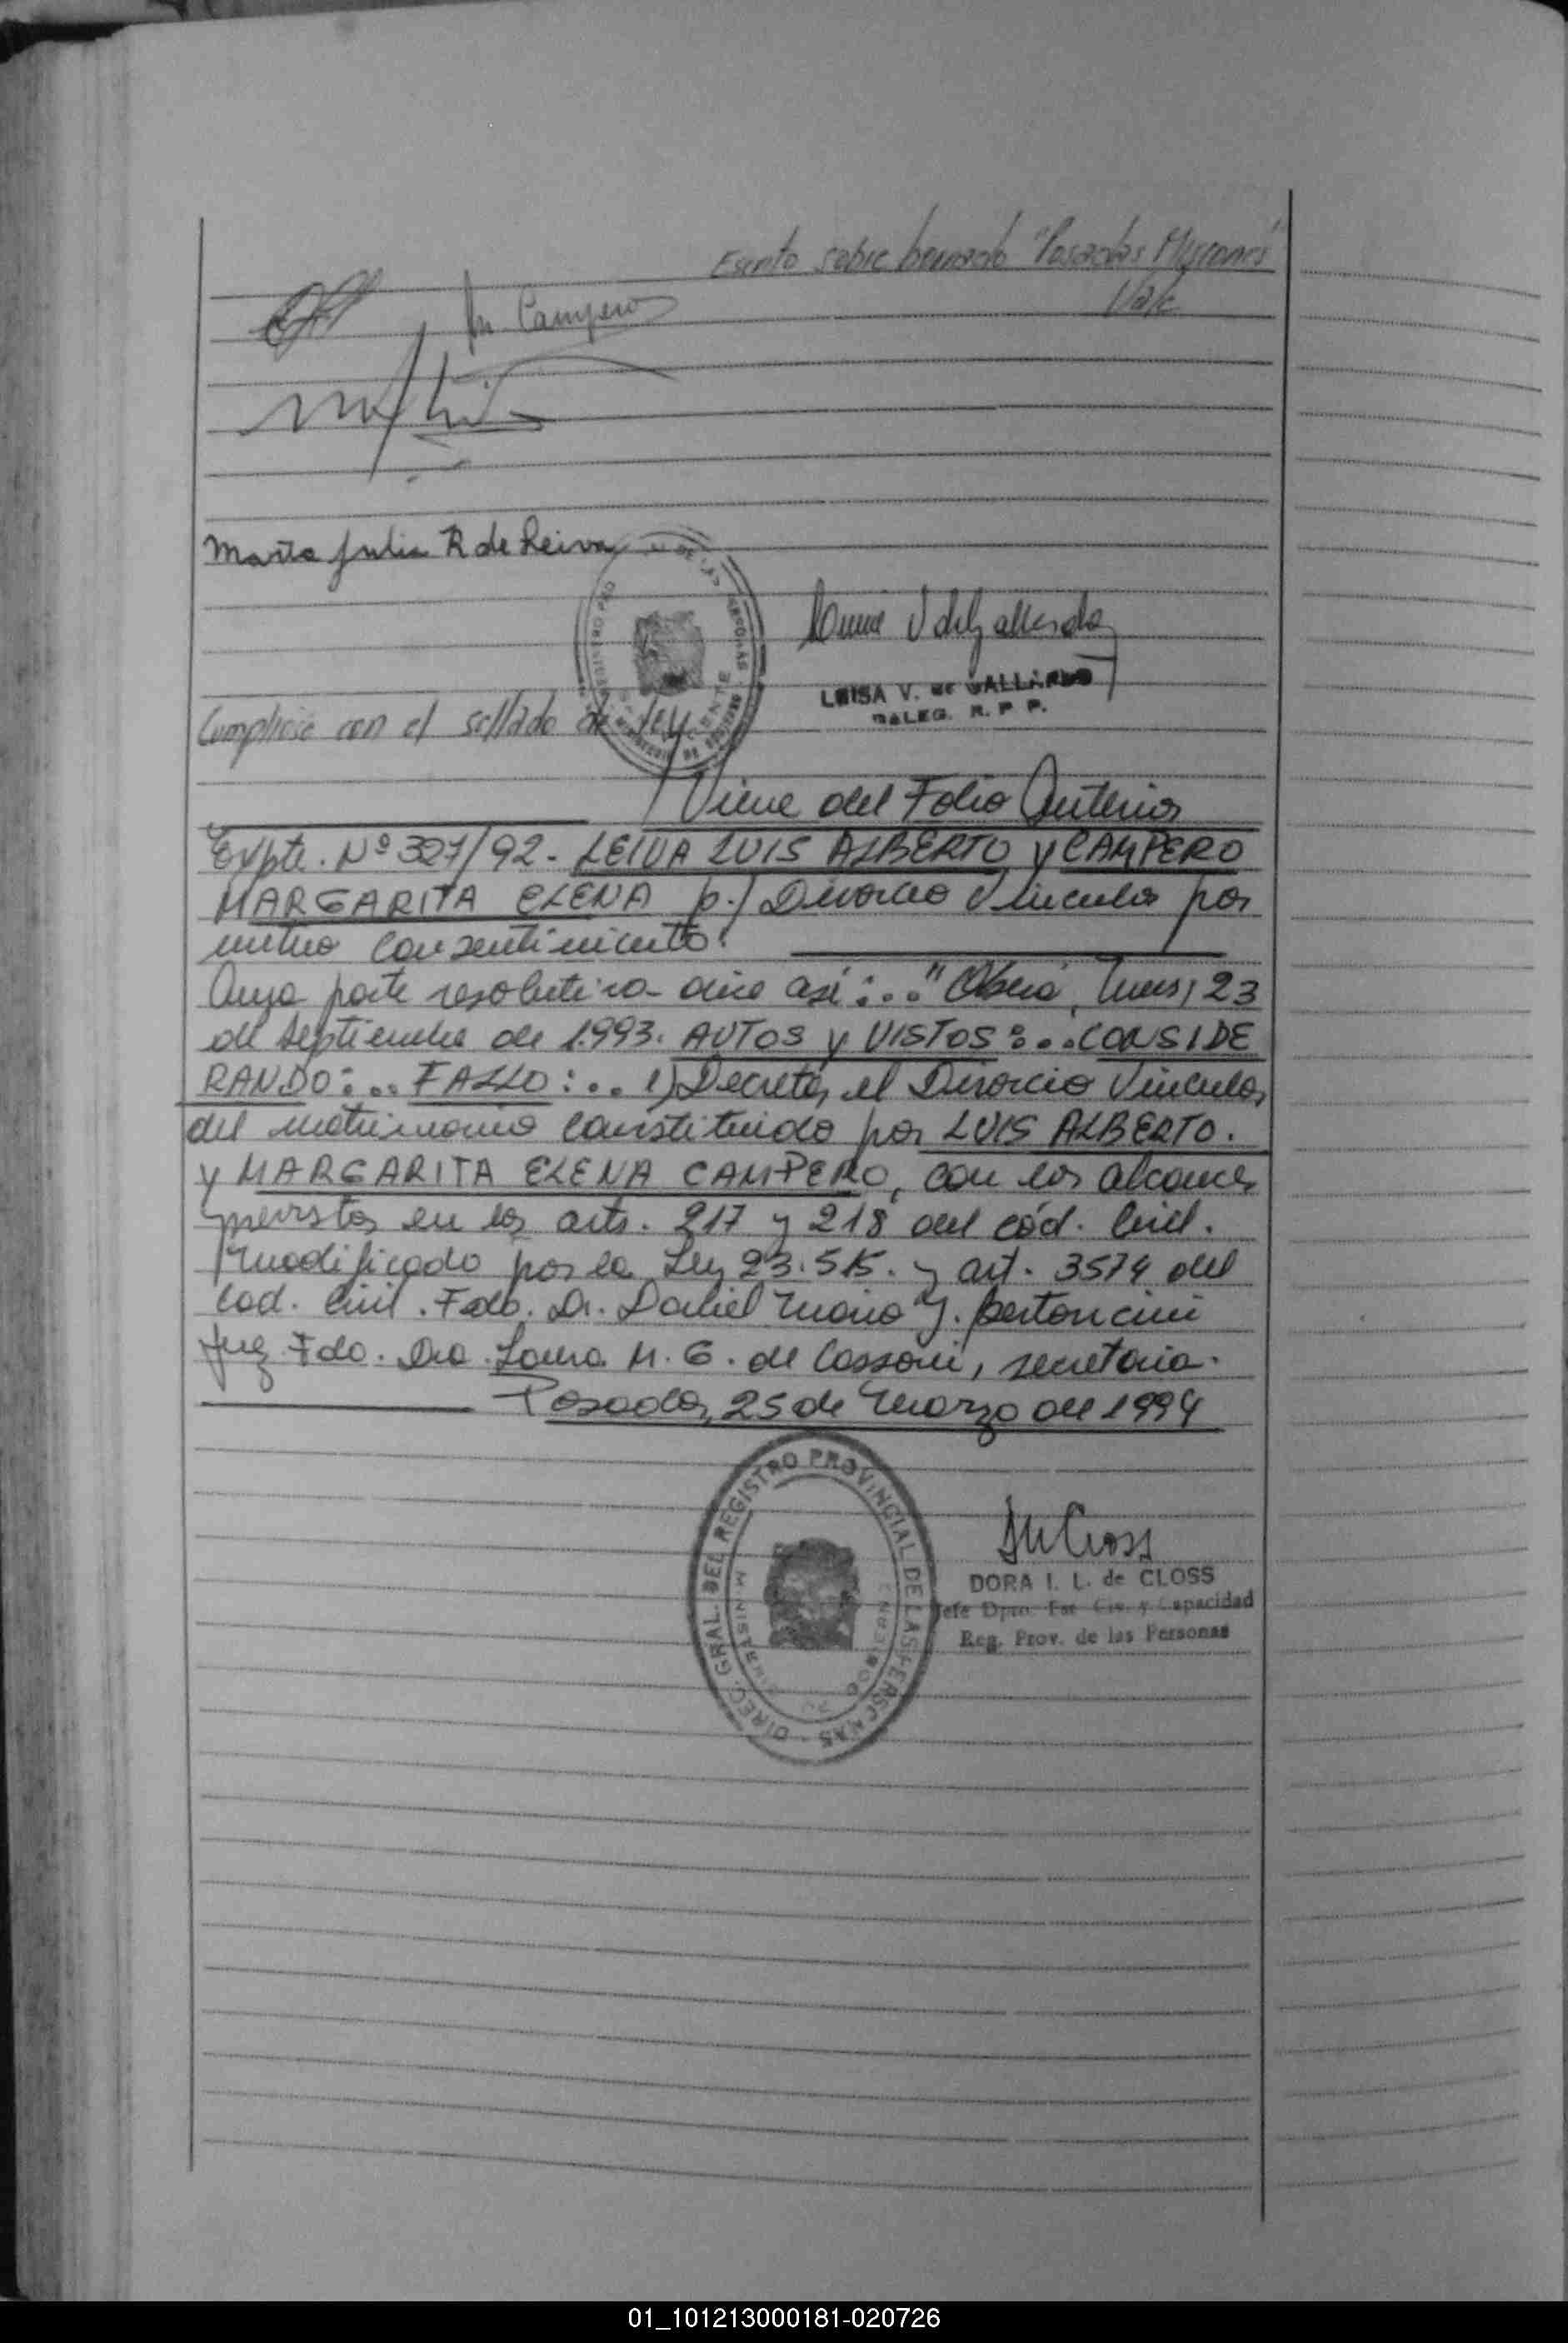 Escrito sobre borrado "Posadas Misiones"
Vale
M Campero
Marta Julia R de Leiva
LUISA V. DE GALLARDO
DELEG. R. P. P.
Cumplióse con el sellado de ley
Viene del Folio Anterior
Expte. Nº 327/92 - LEIVA LUIS ALBERTO y CAMPERO
MARGARITA ELENA p./ Divorcio Vincular por
mutuo consentimiento.
Cuya parte resolutiva dice así:.. "Oberá, Mnes, 23
de septiembre de 1.993. AUTOS y VISTOS:... CONSIDE
RANDO:... FALLO:... 1) Decretar el Divorcio Vincular
del matrimonio constituido por LUIS ALBERTO.
y MARGARITA ELENA CAMPERO, con los alcances
previstos en los arts. 217 y 218 del cód. Civil.
modificado por la Ley 23.515. y art. 3574 del
Cod. Civil. Fdo. Dr. Daniel Mario J. Bertoncini
Juez. Fdo. Dra. Laura M. G. de Cassoni, secretaria.
Posadas, 25 de Marzo de 1994
DIREC. GRAL. DEL REGISTRO PROVINCIAL DE LAS PERSONAS
DORA I. L. de CLOSS
Jefe Dpto. Est Civ. y Capacidad
Reg. Prov. de las Personas
01_101213000181-020726